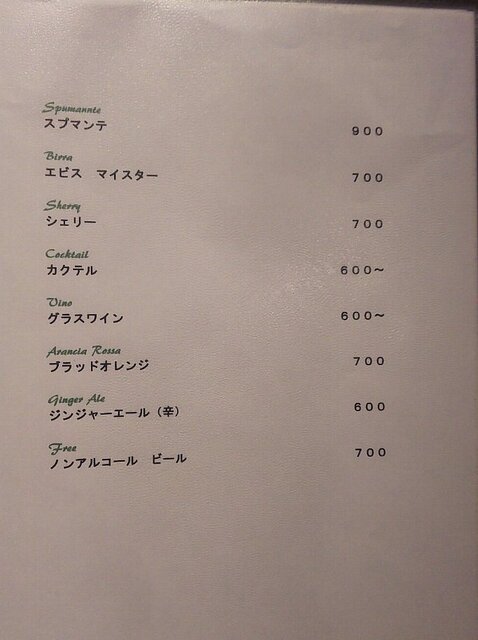 Spumannte
スプマンテ 900
Birra
エビス マイスター 700
Sherry
シェリー 700
Cocktail
カクテル 600～
Vino
グラスワイン 600～
Arancia Rossa
ブラッドオレンジ 700
Ginger Ale
ジンジャーエール（辛） 600
Free
ノンアルコール ビール 700